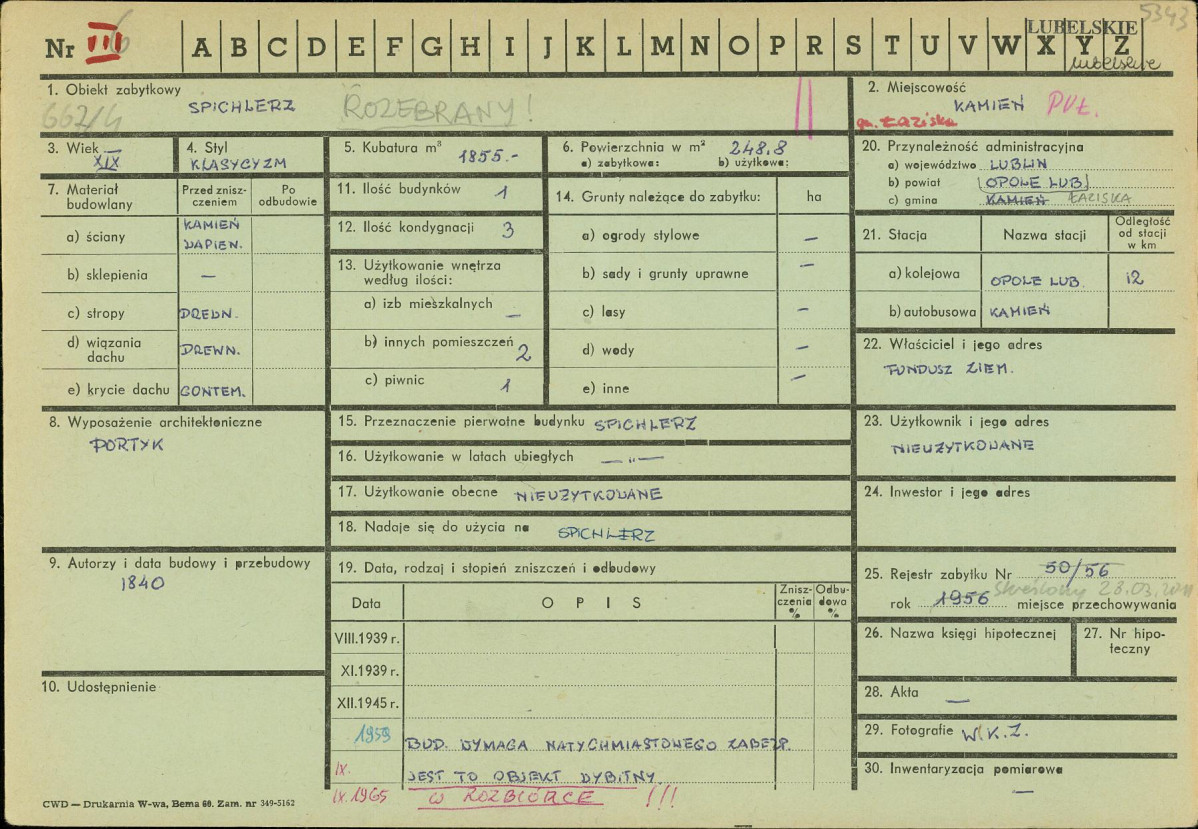 5343
Nr III A B C D E F G H I J K L M N O P R S T U V W X Y Z
LUBELSKIE
lubelskie
1. Obiekt zabytkowy
SPICHLERZ
ROZEBRANY!
662/4
2. Miejscowość
KAMIEŃ PUŁ.
gm. Łaziska
3. Wiek
XIX
4. Styl
KLASYCYZM
5. Kubatura m³ 1855.-
6. Powierzchnia w m² 248.8
a) zabytkowa: b) użytkowa:
7. Materiał budowlany
Przed zniszczeniem
Po odbudowie
a) ściany KAMIEŃ WAPIEN.
b) sklepienia —
c) stropy DREWN.
d) wiązania dachu DREWN.
e) krycie dachu GONTEM.
8. Wyposażenie architektoniczne
PORTYK
9. Autorzy i data budowy i przebudowy
1840
10. Udostępnienie
11. Ilość budynków 1
12. Ilość kondygnacji 3
13. Użytkowanie wnętrza według ilości:
a) izb mieszkalnych —
b) innych pomieszczeń 2
c) piwnic 1
14. Grunty należące do zabytku: ha
a) ogrody stylowe —
b) sady i grunty uprawne —
c) lasy —
d) wody —
e) inne —
15. Przeznaczenie pierwotne budynku SPICHLERZ
16. Użytkowanie w latach ubiegłych —"—
17. Użytkowanie obecne NIEUŻYTKOWANE
18. Nadaje się do użycia na SPICHLERZ
19. Data, rodzaj i stopień zniszczeń i odbudowy
Data OPIS Zniszczenia % Odbudowa %
VIII.1939 r.
XI.1939 r.
XII.1945 r.
1959 BUD. WYMAGA NATYCHMIASTOWEGO ZABEZP.
IX. JEST TO OBJEKT WYBITNY.
IX.1965 W ROZBIÓRCE !!!
20. Przynależność administracyjna
a) województwo LUBLIN
b) powiat OPOLE LUB
c) gmina KAMIEŃ ŁAZISKA
21. Stacja Nazwa stacji Odległość od stacji w km
a) kolejowa OPOLE LUB. 12
b) autobusowa KAMIEŃ
22. Właściciel i jego adres
FUNDUSZ ZIEM.
23. Użytkownik i jego adres
NIEUŻYTKOWANE
24. Inwestor i jego adres
25. Rejestr zabytku Nr 50/56
Skreślony 28.03.2011
rok 1956 miejsce przechowywania
26. Nazwa księgi hipotecznej
27. Nr hipoteczny
28. Akta —
29. Fotografie W.K.Z.
30. Inwentaryzacja pomiarowa
—
CWD — Drukarnia W-wa, Bema 60. Zam. nr 349-5162